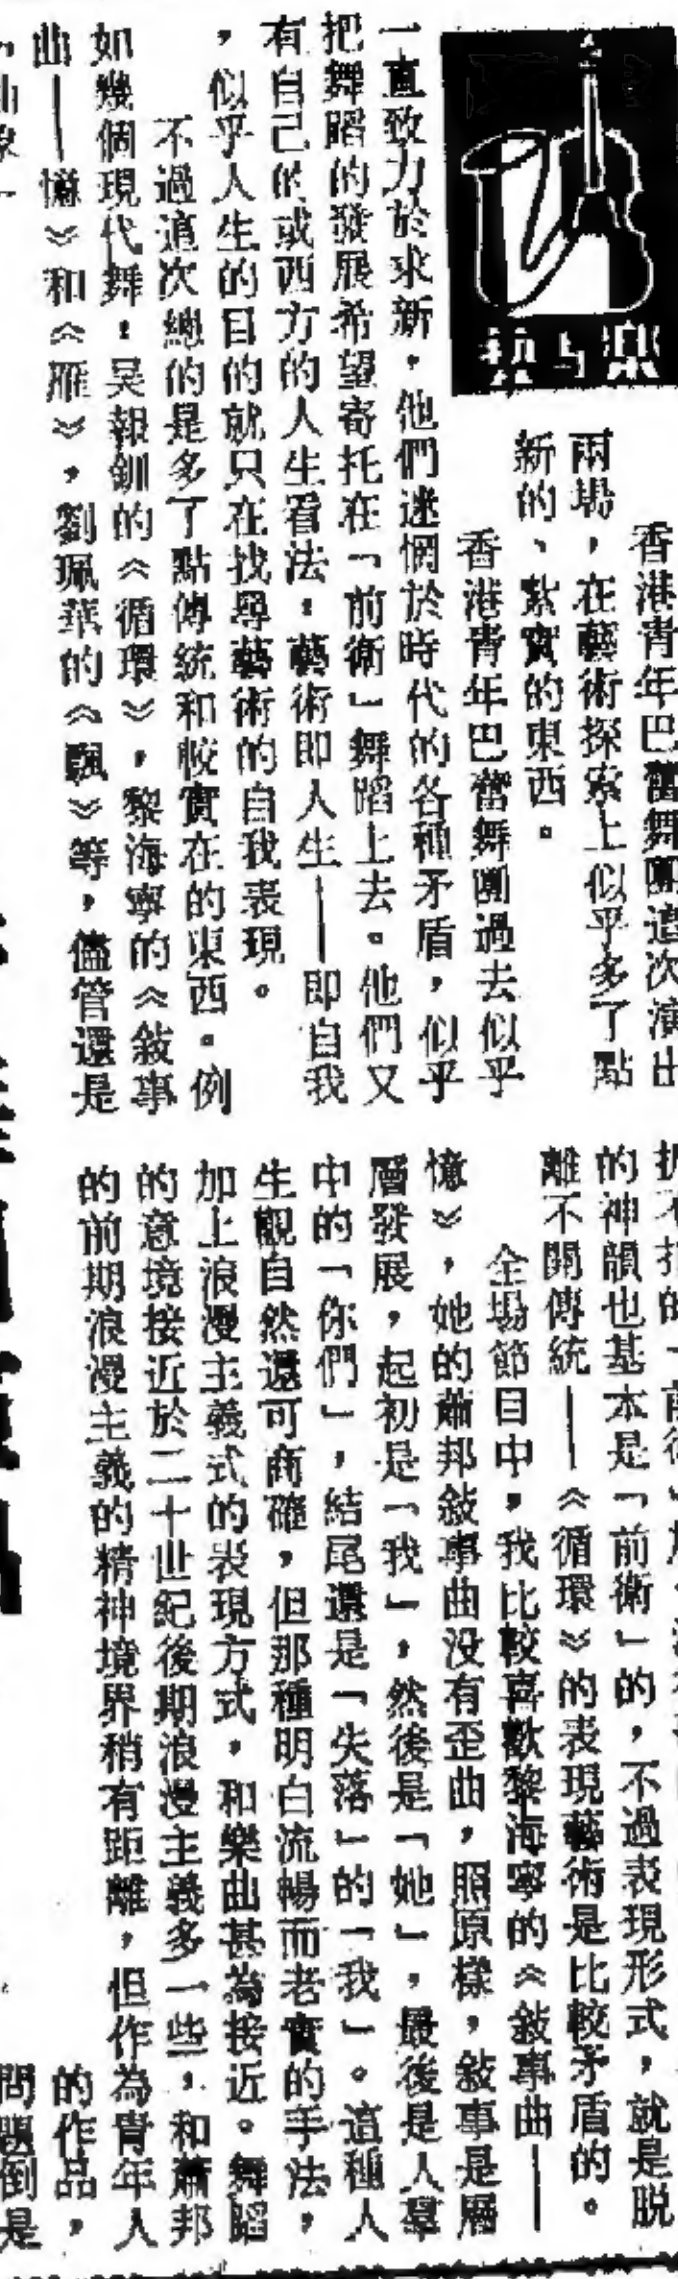 藝与樂
香港青年巴蕾舞團這次演出
兩場，在藝術探索上似乎多了點
新的、紮實的東西。
香港青年巴蕾舞團過去似乎
一直致力於求新，他們迷惘於時代的各種矛盾，似乎
把舞蹈的發展希望寄托在「前衛」舞蹈上去。他們又
有自己的或西方的人生看法：藝術即人生——即自我
，似乎人生的目的就只在找尋藝術的自我表現。
不過這次總的是多了點傳統和較實在的東西。例
如幾個現代舞：吳報釧的《循環》，黎海寧的《敍事
曲——憶》和《雁》，劉珮華的《飄》等，儘管還是
的神韻也基本是「前衛」的，不過表現形式，就是脱
離不開傳統——《循環》的表現藝術是比較矛盾的。
全場節目中，我比較喜歡黎海寧的《敍事曲——
憶》，她的蕭邦敍事曲没有歪曲，照原樣，敍事是層
層發展，起初是「我」，然後是「她」，最後是人羣
中的「你們」，結尾還是「失落」的「我」。這種人
生觀自然還可商確，但那種明白流暢而老實的手法，
加上浪漫主義式的表現方式，和樂曲甚為接近。舞蹈
的意境接近於二十世紀後期浪漫主義多一些，和蕭邦
的前期浪漫主義的精神境界稍有距離，但作為青年人
的作品，
問題倒是